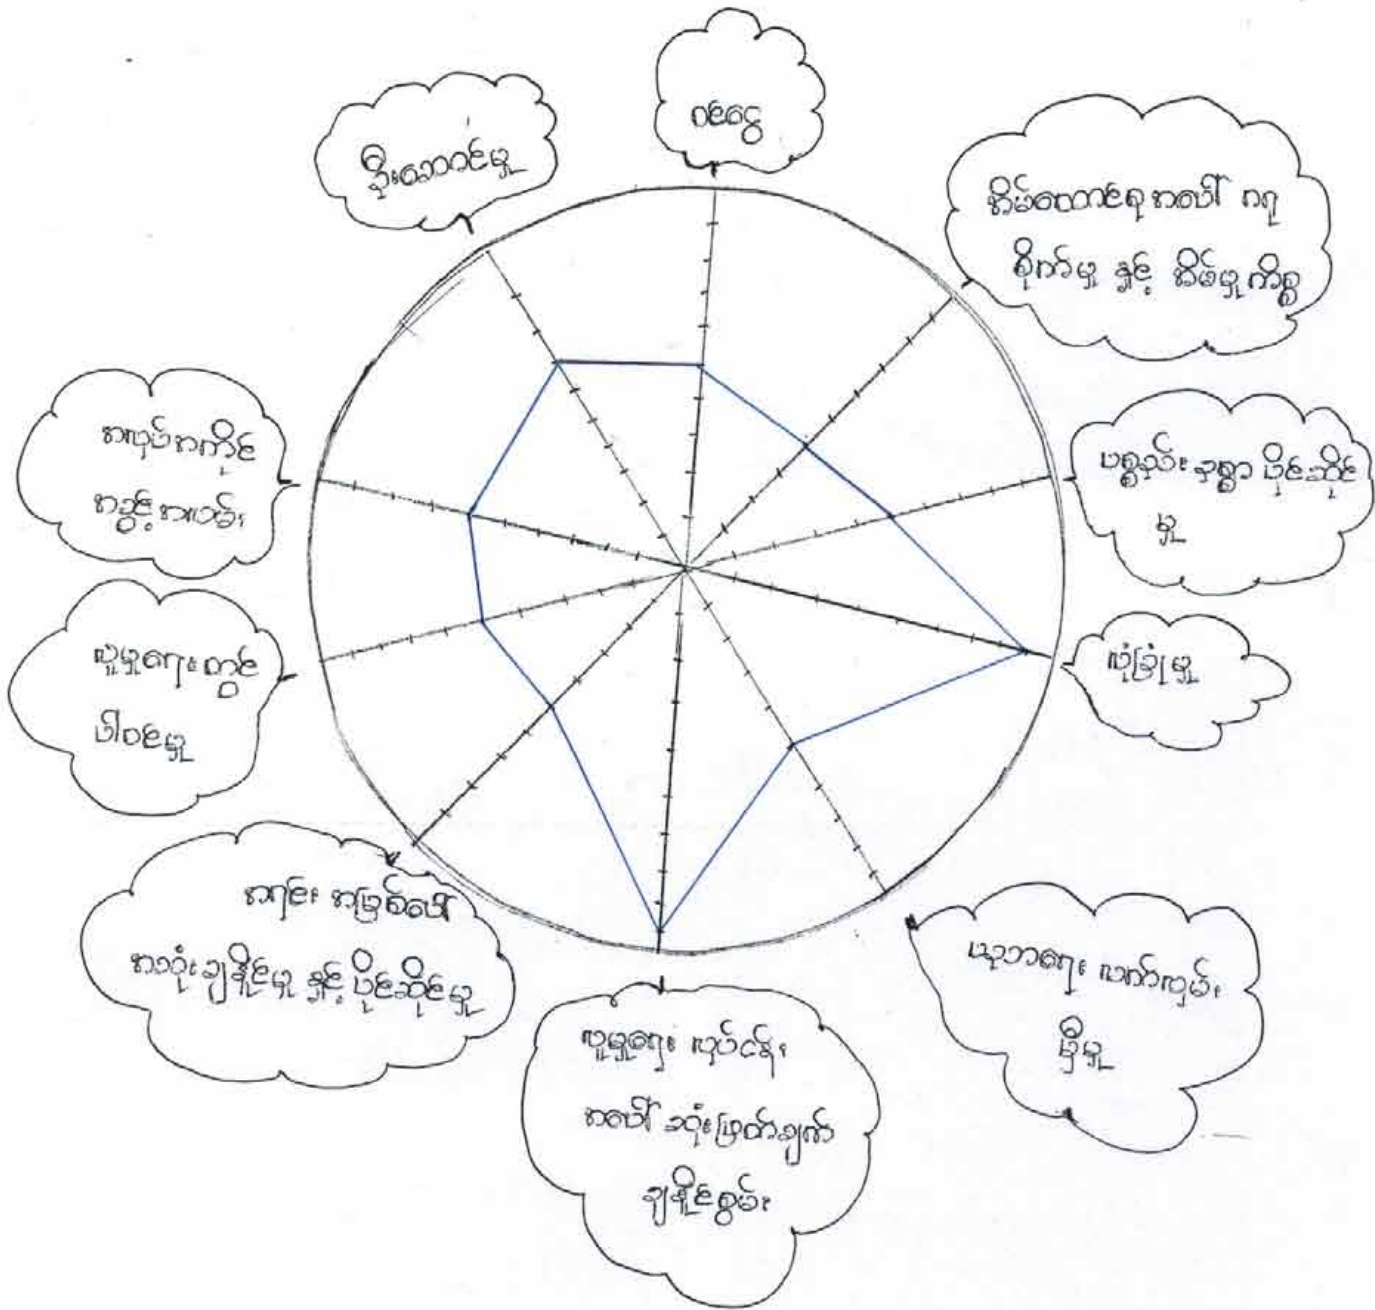 ဝင်ငွေ
ဦးဆောင်မှု
အိမ်ထောင်ရေအပေါ် ဂရု
စိုက်မှု နှင့် အိမ်မှုကိစ္စ
ပစ္စည်း ဥစ္စာ ပိုင်ဆိုင်
မှု
လုံခြုံမှု
ယုဘရေး လက်လှမ်း
မှီမှု
လူမှုရေး လုပ်ငန်း
အပေါ် ဆုံးဖြတ်ချက်
ချနိုင်စွမ်း
အရင်း အမြစ်ပေါ်
အသုံးချနိုင်မှု နှင့် ပိုင်ဆိုင်မှု
လူမှုရေးတွင်
ပါဝင်မှု
အလုပ်အကိုင်
အခွင့်အလမ်း